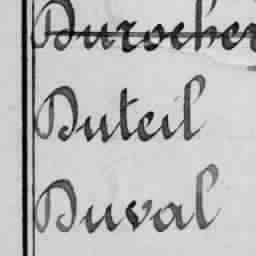 Durocher
Duteil
Duval